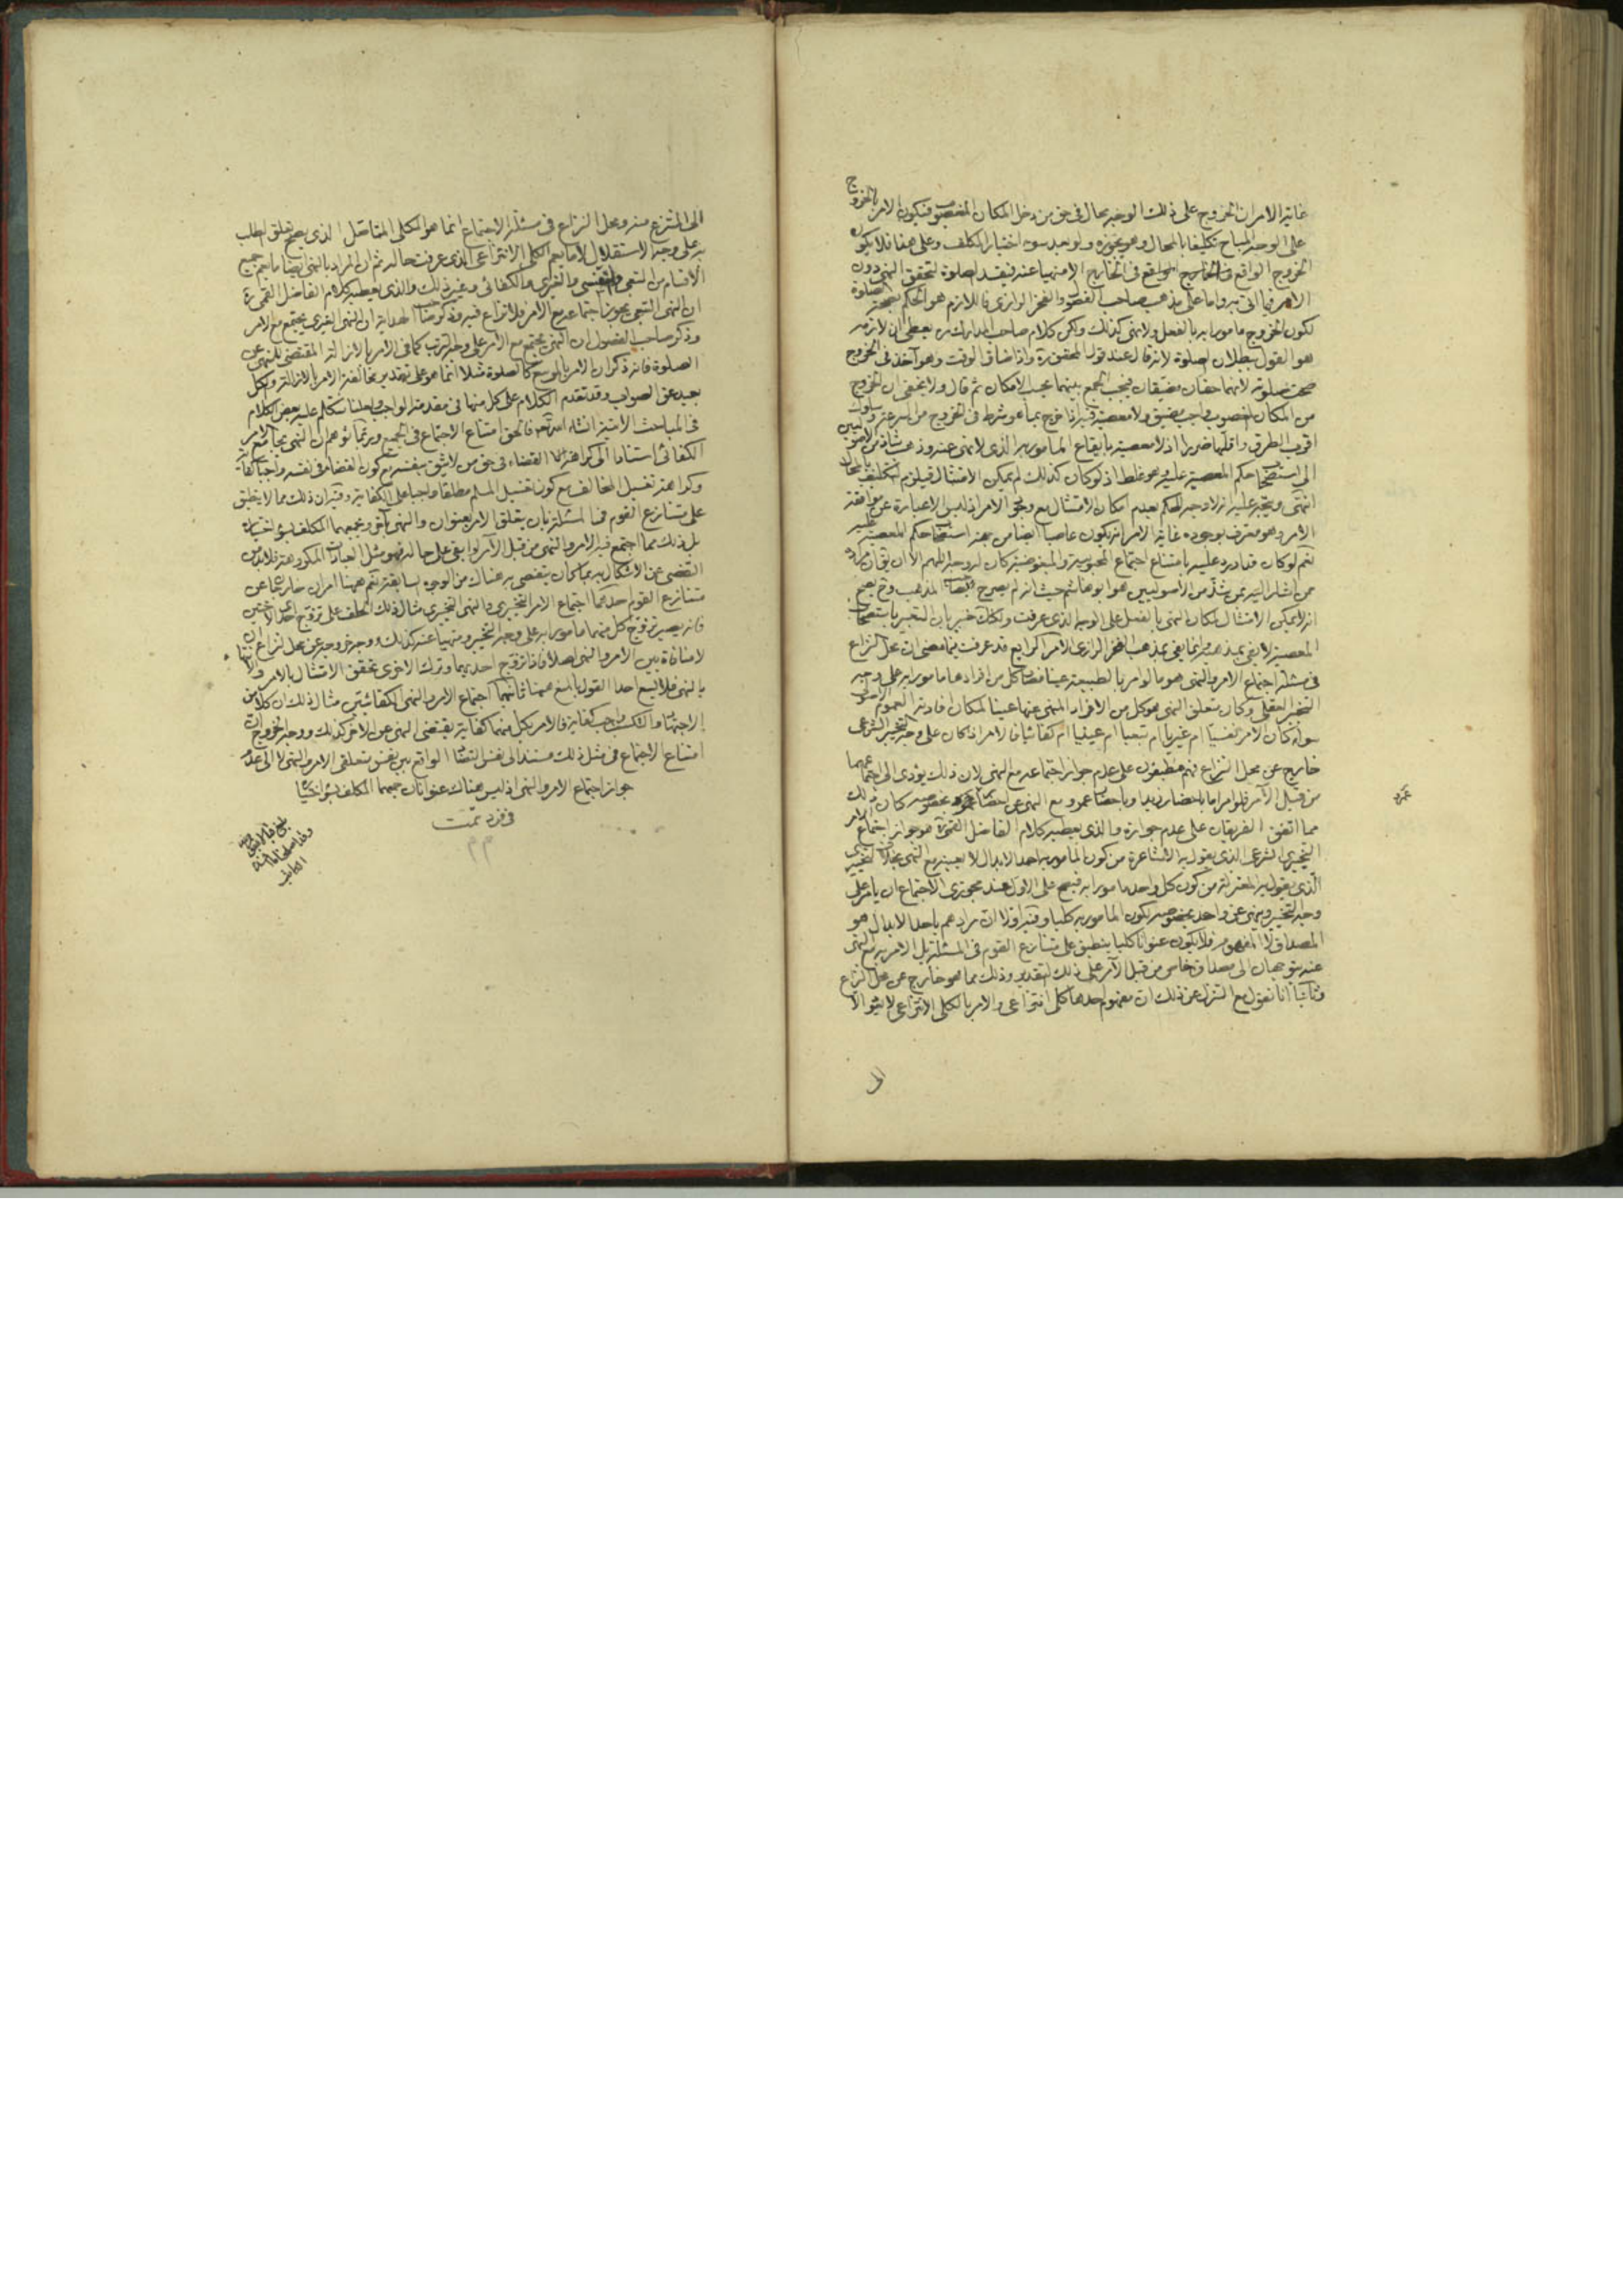 غاية الامر ان الخروج على ذلك الوجه محال في حق من دخل المكان المغصوب فيكون الامر بالخروج
على الوجه المباح تكليفا بالمحال وهو يجوزه ولو بعد سوء اختيار المكلف وعلى هذا فلا يكون
الخروج الواقع في الخارج الا منهيا عنه فيفسد الصلوة لتحقق النهي دون
الامر واما على مذهب صاحب الفصول والفخر الرازي فاللازم هو الحكم بصحة الصلوة
لكون الخروج مامورا به بالفعل ولا نهي كذلك ولكن كلام صاحب المدارك ره يعطي ان لازمه
هو القول ببطلان الصلوة لانه قال عند قول المحقق ره واذا ضاق الوقت وهو آخذ في الخروج
صحت صلوته لانهما حقان مضيقان فيجب الجمع بينهما بحسب الامكان ثم قال ولا يخفى ان الخروج
من المكان المغصوب واجب مضيق ولا معصية فيه اذا خرج بما هو شرط في الخروج من السرعة وسلوك
اقرب الطرق واقلها ضررا اذ لا معصية بايقاع المامور به الذي لا نهي عنه وذهب شاذ من الاصوليين
الى استصحاب حكم المعصية عليه وهو غلط اذ لو كان كذلك لم يمكن الامتثال فيلزم التكليف بالمحال
انتهى ويتجه عليه انه لا وجه للحكم بعدم امكان الامتثال مع وجود الامر اذ ليس الا عبارة عن موافقة
الامر وهو معترف بوجوده غاية الامر انه يكون عاصيا ايضا من جهة استصحاب حكم المعصية عليه
نعم لو كان قد اورد عليه بامتناع اجتماع المحبوبية والمبغوضية كان له وجه اللهم الا ان يقال مراده
ممن اشار اليه ممن شذ من الاصوليين هو ابو هاشم حيث انه لم يصرح بهذا المذهب وح يصح
انه لا يمكن الامتثال لمكان النهي بالفعل على الوجه الذي عرفت ولكنك خبير بان التعبير باستصحاب
المعصية لا يفي بمذهبه وانما يفي بمذهب الفخر الرازي الامر الرابع قد عرفت فيما مضى ان محل النزاع
في مسئلة اجتماع الامر والنهي هو ما لو امر بالطبيعة عينا فصار كل من افرادها مامورا به على وجه
التخيير العقلي وكان متعلق النهي هو كل من الافراد المنهي عنها عينا لمكان افادته العموم الاصولي
سواء كان الامر نفسيا ام غيريا ام تبعيا ام عينيا ام كفائيا فالامر اذا كان على وجه التخيير الشرعي
خارج عن محل النزاع فهم مطبقون على عدم جواز اجتماعه مع النهي لان ذلك يؤدي الى اجتماعهما
من قبل الآمر فلو امر اما باحضار زيد او باحضار عمرو مع النهي عن احضار عمرو بخصوصه كان ذلك
مما اتفق الفريقان على عدم جوازه والذي يعطيه كلام الفاضل القمي ره هو جواز اجتماع الامر
التخييري الشرعي الذي يقول به الاشاعرة من كون المامور به احد الابدال لا بعينه مع النهي بخلاف التخيير
الذي يقول به المعتزلة من كون كل واحد مامورا به فيصح على الاول عند مجوزي الاجتماع ان يامر على
وجه التخيير وينهى عن واحد بخصوصه لكون المامور به كليا وفيه اولا ان مرادهم باحد الابدال هو
المصداق لا المفهوم فلا يكون عنوانا كليا ينطبق على متنازع القوم في المسئلة بل الامر به مع النهي
عنه يتوجهان الى مصداق خاص من قبل الآمر على ذلك التقدير وذلك مما هو خارج عن محل النزاع
وثانيا انا نقول مع التنزل عن ذلك ان مفهوم احدها كلي انتزاعي والامر بالكلي الانتزاعي لا يتوجه الا
الى
عمرو
الى المنتزع منه ومحل النزاع في مسئلة الاجتماع انما هو الكلي المتأصل الذي يصح تعلق الطلب
به على وجه الاستقلال لا ما يعم الكلي الانتزاعي الذي عرفت حاله ثم ان المراد بالنهي ايضا ما يعم جميع
الاقسام من التبعي والنفسي والغيري والكفائي وغير ذلك والذي يعطيه كلام الفاضل القمي ره
ان النهي التبعي يجوز اجتماعه مع الامر فلا نزاع فيه وذكر صاحب الهداية ان النهي الغيري يجتمع مع الامر
وذكر صاحب الفصول ان النهي يجتمع مع الامر على وجه الترتب كما في الامر بالازالة المقتضي للنهي عن
الصلوة فانه ذكر ان الامر بالموسع كالصلوة مثلا انما هو على تقدير مخالفة الامر بالازالة والكل
بعيد عن الصواب وقد تقدم الكلام على كل منها في مقدمة الواجب ولعلنا نتكلم عليه بعض الكلام
في المباحث الآتية انشاء الله تعالى فالحق امتناع الاجتماع في الجميع وربما توهم ان النهي يجامع الامر
الكفائي استنادا الى كراهة القضاء في حق من لا يثق بنفسه مع كون القضاء في نفسه واجبا كفائيا
وكراهة تغسيل المخالف مع كون تغسيل المسلم مطلقا واجبا على الكفاية وفيه ان ذلك مما لا ينطبق
على متنازع القوم في المسئلة بان يتعلق الامر بعنوان والنهي بآخر ويجمعهما المكلف بسوء اختياره
بل ذلك مما اجتمع فيه الامر والنهي من قبل الآمر لو ابقي على حاله فهو مثل العبادات المكروهة فلابد من
التفصي عن الاشكال به بما كان يتفصى به هناك من الوجوه السابقة نعم ههنا امران خارجان عن
متنازع القوم احدهما اجتماع الامر التخييري والنهي التخييري مثال ذلك الحلف على تزوج احدى الاختين
فانه يصير تزوج كل منهما مامورا به على وجه التخيير ومنهيا عنه كذلك ووجه خروجه عن محل النزاع انه
لا منافاة بين الامر والنهي اصلا فاذا تزوج احديهما وترك الاخرى تحقق الامتثال بالامر و
بالنهي فلا يسع احدا القول بالمنع ههنا ثانيهما اجتماع الامر والنهي الكفائيتين مثال ذلك ان كلا من
واجب كفاية فالامر بكل منهما كفاية يقتضي النهي عن الآخر كذلك ووجه الخروج ان
امتناع الاجتماع في مثل ذلك مستند الى نفس التضاد الواقع بين نفس متعلقي الامر والنهي لا الى عدم
جواز اجتماع الامر والنهي اذ ليس هناك عنوانان جمعهما المكلف بسوء اختياره
في فرد تمت
م م